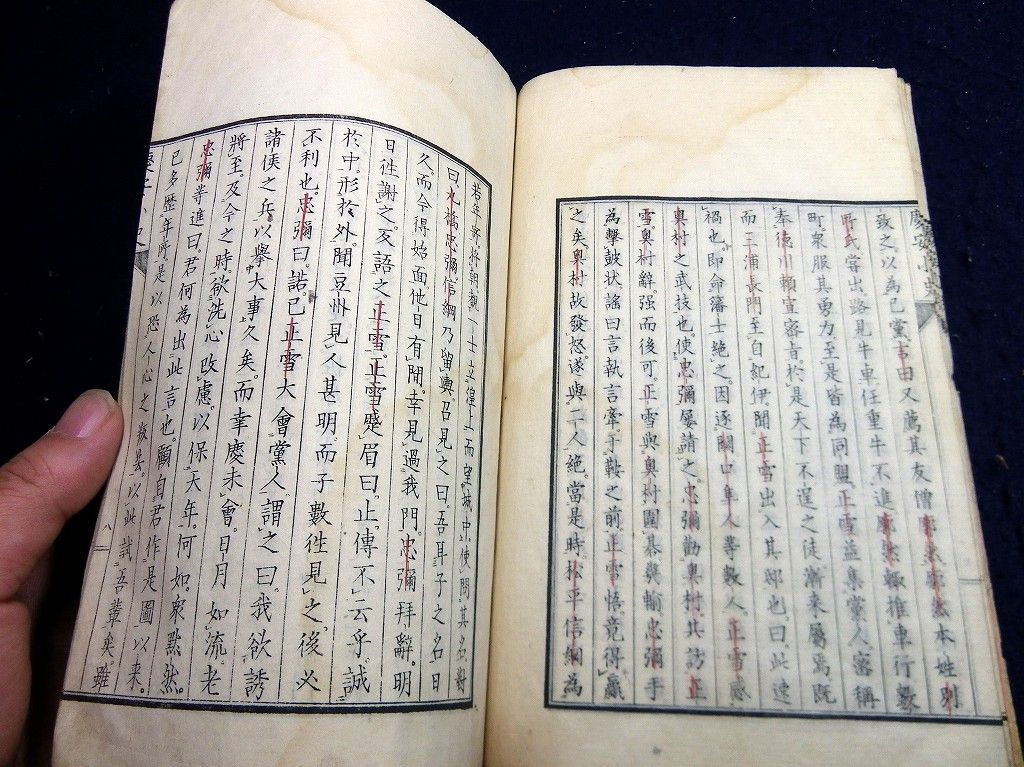 慶安小史
致之。以為己黨。吉田又薦其友僧廓然。廓然本姓別
所氏。嘗出路見牛車任重牛不進。廓然輙推車行數
町。衆服其勇力。至是皆為同盟。正雪益集黨人。密稱
奉德川頼宣密旨。於是天下不逞之徒漸来屬焉。既
而三浦長門至自紀伊聞正雪出入其邸也。曰。此速
禍也。即命藩士絶之。因逐關口隼人等數人。正雪感
奥村之武技也。使忠彌屡請之。忠彌勸奥村。其訪正
雪。奥村辭。强而後可。正雪與奥村圍棊。幾輸。忠彌手
為擊鼓状謠曰。言執言牽于鞍之前。正雪悟。竟得贏
之矣。奥村故發怒。遂與二人絶。當是時。松平信綱為
若年寄。將朝覲。一士立湟上而望城中。使問其名。對
曰。丸橋忠彌。信綱乃留輿。召見之曰。吾耳子之名日
久。而今得始面。他日有間。幸見過我門。忠彌拜辭。明
日徃謝之。反語之正雪。正雪蹙眉曰。止。傳不云乎。誠
於中。形於外。聞豆州見人甚明。而子數徃見之。後必
不利也。忠彌曰。諾。已正雪大會黨人。謂之曰。我欲誘
諸侯之兵。以擧大事久矣。而幸慶未會。日月如流。老
將至。及今之時。欲洗心改慮。以保天年。何如。衆黙然。
忠彌等進曰。君何為出此言也。顧自君作是圖以来。
已多歷年所。是以恐人心之散。曇以此試吾輩矣。雖
八